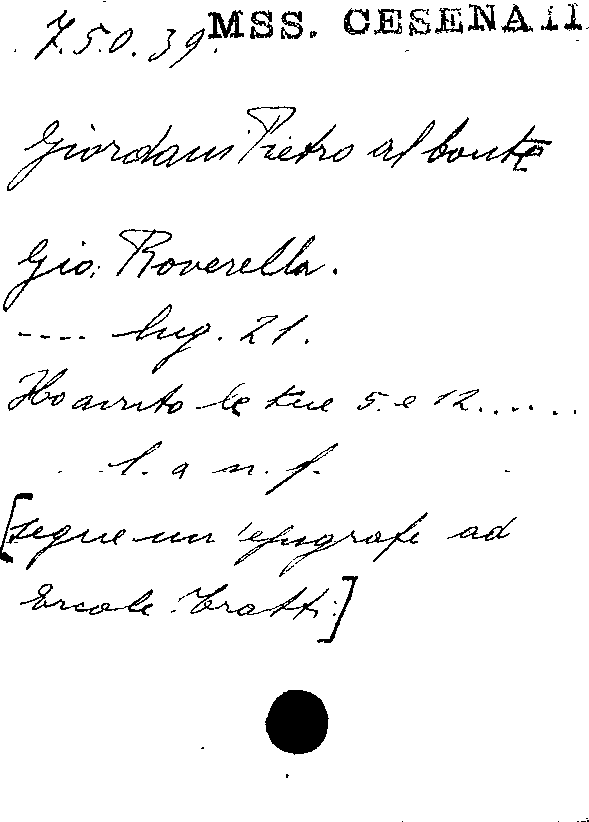 MSS. CESENA 11
7.5.0.39.
Giordani Pietro al conte
Gio. Roverella.
.... lug. 21.
Ho avuto le tue 5. e 12......
l. a n. f.
[segue un'epigrafe ad
Ercole Tratti.]